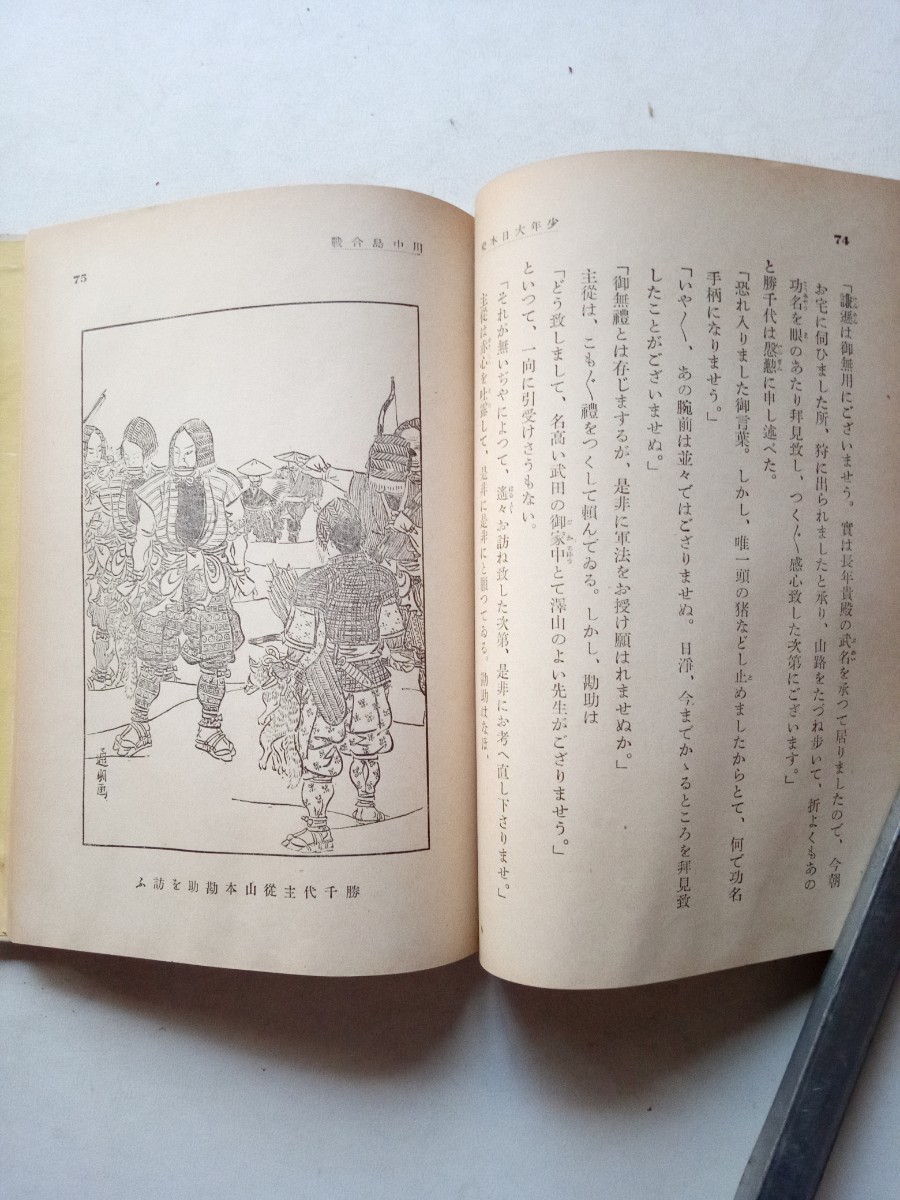 74
少年大日本史
「謙遜は御無用にございませう。實は長年貴殿の武名を承つて居りましたので、今朝
お宅に伺ひました所、狩に出られましたと承り、山路をたづね歩いて、折よくもあの
功名を眼のあたり拜見致し、つく〴〵感心致した次第にございます。」
と勝千代は慇懃に申し述べた。
「恐れ入りました御言葉。しかし、唯一頭の猪などし止めましたからとて、何で功名
手柄になりませう。」
「いや〳〵、あの腕前は並々ではござりませぬ。日淨、今までかゝるところを拜見致
したことがございませぬ。」
「御無禮とは存じまするが、是非に軍法をお授け願はれませぬか。」
主從は、こも〴〵禮をつくして頼んてゐる。しかし、勘助は
「どう致しまして、名高い武田の御家中とて澤山のよい先生がござりませう。」
といつて、一向に引受けさうもない。
「それが無いぢやによつて、遙々お訪ね致した次第、是非にお考へ直し下さりませ。」
主從は赤心を吐露して、是非に是非にと願つてゐる。勘助はなほ、
川中島合戰
75
勝千代主從山本勘助を訪ふ